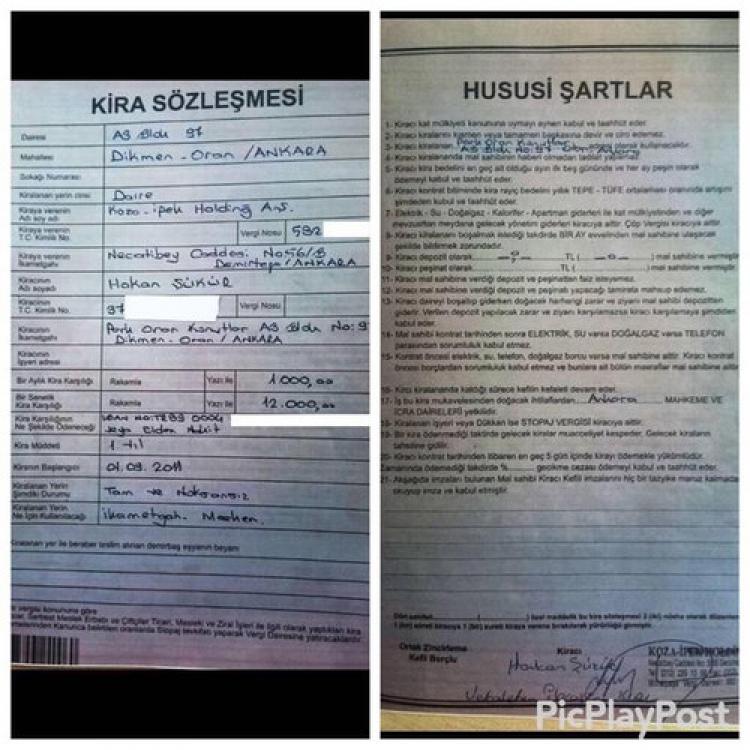 KİRA SÖZLEŞMESİ
Dairesi A3 Blok 97
Mahallesi Dikmen-Oran/ANKARA
Sokağı Numarası
Kiralanan yerin cinsi Daire
Kiraya verenin Adı soy adı Koza-ipek Holding A.Ş.
Kiraya verenin T.C. Kimlik No. Vergi Nosu 592
Kiraya verenin İkametgahı Necatibey Caddesi No:56/B
Demirtepe/ANKARA
Kiracının Adı soyadı Hakan ŞÜKÜR
Kiracının T.C. Kimlik No. 37 Vergi Nosu
Kiracının İkametgahı Park Oran Konutlar A3 Blok No:9
Dikmen-Oran/ANKARA
Kiracının İşyeri adresi
Bir Aylık Kira Karşılığı Rakamla Yazı ile 1000,00
Bir Senelik Kira Karşılığı Rakamla Yazı ile 12.000,00
Kira Karşılığının Ne Şekilde Ödeneceği
veya Elden Nakit
Kira Müddeti 1-Yıl
Kiranın Başlangıcı 01.09.2011
Kiralanan Yerin Şimdiki Durumu Tam ve Noksansız
Kiralanan Yerin Ne İçin Kullanılacağı İkametgah. Mesken.
Kiralanan yer ile beraber teslim alınan demirbaş eşyanın beyanı
r vergisi kanununa göre
Serbest Meslek Erbabı ve Çiftçiler Ticari, Mesleki ve Zirai İşleri ile ilgili olarak yaptıkları kira
Kanunca belirtilen oranlarda Stopaj tevkifatı yaparak Vergi Dairesine yatıracaklardır.
HUSUSİ ŞARTLAR
1- Kiracı kat mülkiyeti kanununa uymayı aynen kabul ve taahhüt eder.
2- Kiracı kiralananı kısmen veya tamamen başkasına devir ve ciro edemez.
3- Kiracı kiralananı Park Oran Konutlar adresi olarak kullanacaktır.
A3 Blok No:97 Oran/Ankara
4- Kiracı kiralananda mal sahibinin haberi olmadan tadilat yapamaz.
5- Kiracı kira bedelini en geç ait olduğu ayın ilk beş gününde ve her ay peşin olarak
ödemeyi kabul ve taahhüt eder.
6- Kiracı kontrat bitiminde kira rayiç bedelini yıllık TEPE - TÜFE ortalaması oranında artışını
şimdeden kabul ve taahhüt eder.
7- Elektrik - Su - Doğalgaz - Kalorifer - Apartman giderleri ile kat mülkiyetinden ve diğer
mevzuattan meydana gelecek yönetim giderleri kiracıya aittir. Çöp Vergisi kiracıya aittir.
8- Kiracı kiralananı boşalmak istediği taktirde BİR AY evvelinden mal sahibine ulaşacak
şekilde bildirmek zorundadır.
9- Kiracı depozit olarak TL ( ) mal sahibine vermiştir.
10- Kiracı peşinat olarak TL ( ) mal sahibine vermiştir.
11- Kiracı mal sahibine verdiği depozit ve peşinattan faiz isteyemez.
12- Kiracı mal sahibine verdiği depozit ve peşinatı yapacağı tamirata mahsup edemez.
13- Kiracı daireyi boşaltıp giderken doğacak herhangi zarar ve ziyanı mal sahibi depozitten
giderir. Verilen depozit yapılacak zarar ve ziyanı karşılamazsa kiracı karşılamayı şimdiden
kabul eder.
14- Mal sahibi kontrat tarihinden sonra ELEKTRİK, SU varsa DOĞALGAZ varsa TELEFON
parasından sorumluluk kabul etmez.
15- Kontrat öncesi elektrik, su, telefon, doğalgaz borcu varsa mal sahibine aittir. Kiracı kontrat
öncesi borçlardan sorumluluk kabul etmez ve bunlara ait bütün masraflar mal sahibine aittir
16- Kiracı kiralananda kaldığı sürece kefilin kefaleti devam eder.
17- İş bu kira mukavelesinden doğacak ihtilaflardan Ankara MAHKEME VE
İCRA DAİRELERİ yetkilidir.
18- Kiralanan işyeri veya Dükkan ise STOPAJ VERGİSİ kiracıya aittir.
19- Bir kira ödenmediği taktirde gelecek kiralar muacceliyet kespeder. Gelecek kiraların
tahsiline gidilir.
20- Kiracı kontrat tarihinden itibaren en geç 5 gün içinde kirayı ödemekle yükümlüdür.
Zamanında ödemediği taktirde % gecikme cezası ödemeyi kabul ve taahhüt eder.
21- Aşağıda imzaları bulunan Mal sahibi Kiracı Kefil imzalarını hiç bir tazyike maruz kalmadan
okuyup imza ve kabul etmiştir.
Ortak Zincirleme Kefil Borçlu
Kiracı
Hakan Şükür
KOZA-İPEK HOLDİNG
PicPlayPost